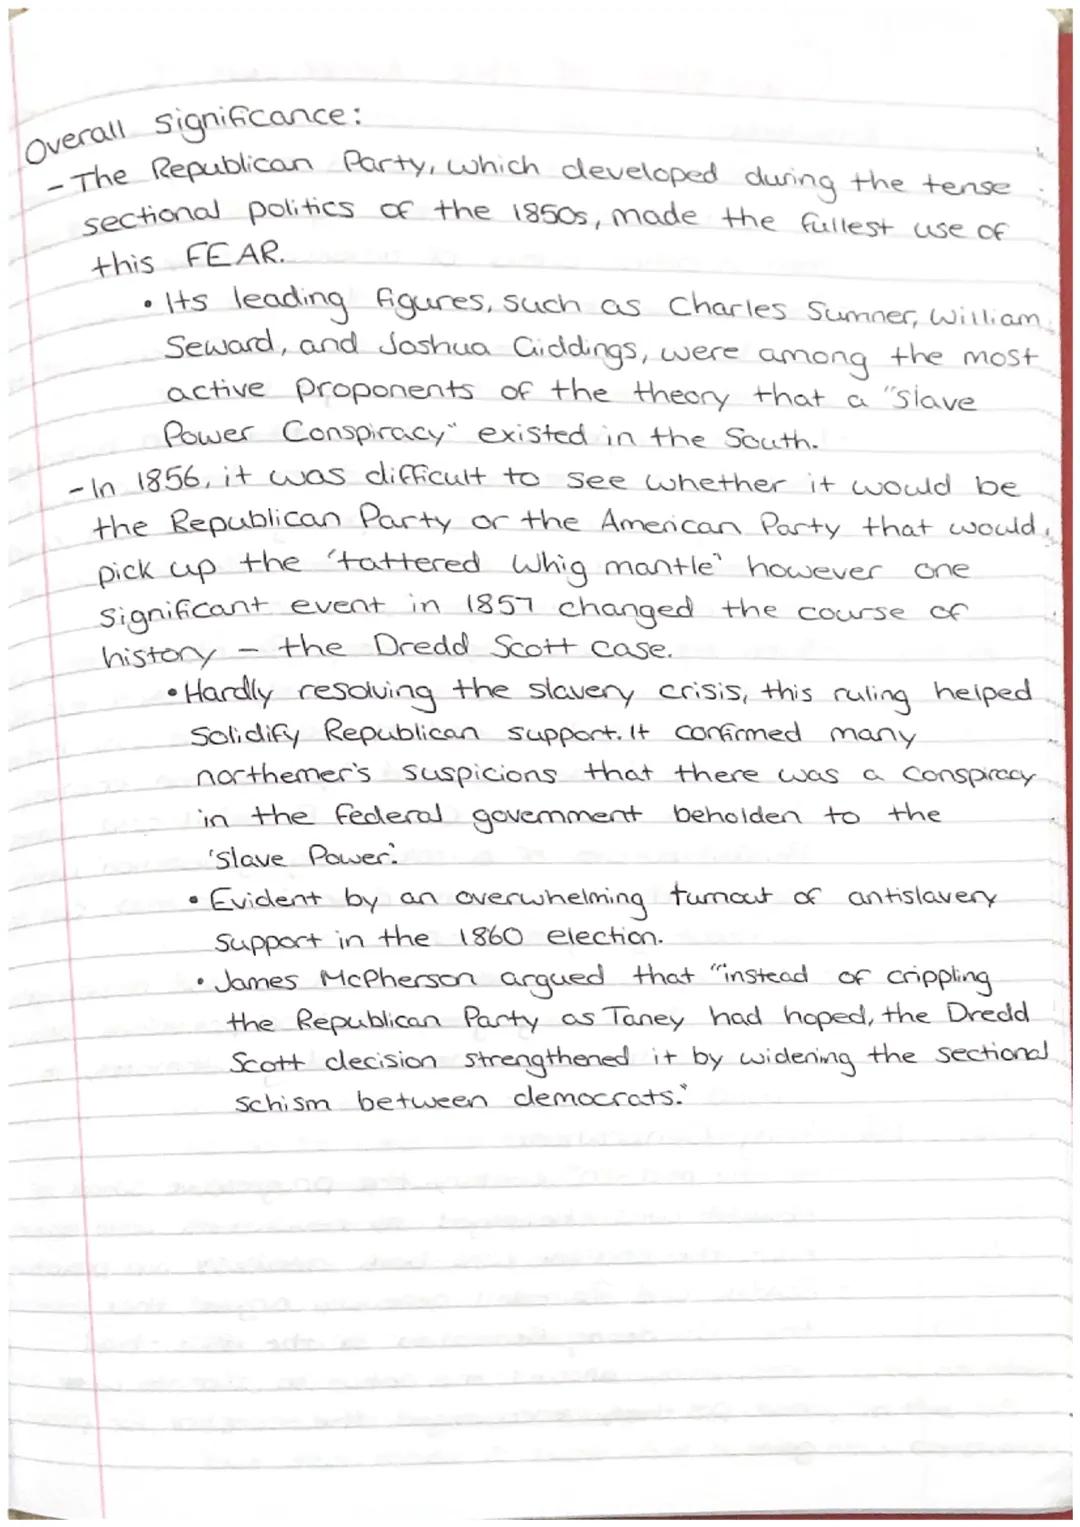 Overall significance:
- The Republican Party, which developed during the tense
sectional politics of the 1850s, made the fullest use of
this FEAR.
• Its leading figures, such as Charles Sumner, William
Seward, and Joshua Giddings, were among the most
active proponents of the theory that a "Slave
Power Conspiracy" existed in the South.
- In 1856, it was difficult to see whether it would be
the Republican Party or the American Party that would
pick up the 'tattered Whig mantle' however one
significant event in 1857 changed the course of
history - the Dredd Scott case.
• Hardly resolving the slavery crisis, this ruling helped
solidify Republican support. It confirmed many
northerner's suspicions that there was a conspiracy
in the federal government beholden to the
'Slave Power'.
• Evident by an overwhelming turnout of antislavery
support in the 1860 election.
• James McPherson argued that "instead of crippling
the Republican Party as Taney had hoped, the Dredd
Scott decision strengthened it by widening the sectional
schism between democrats."